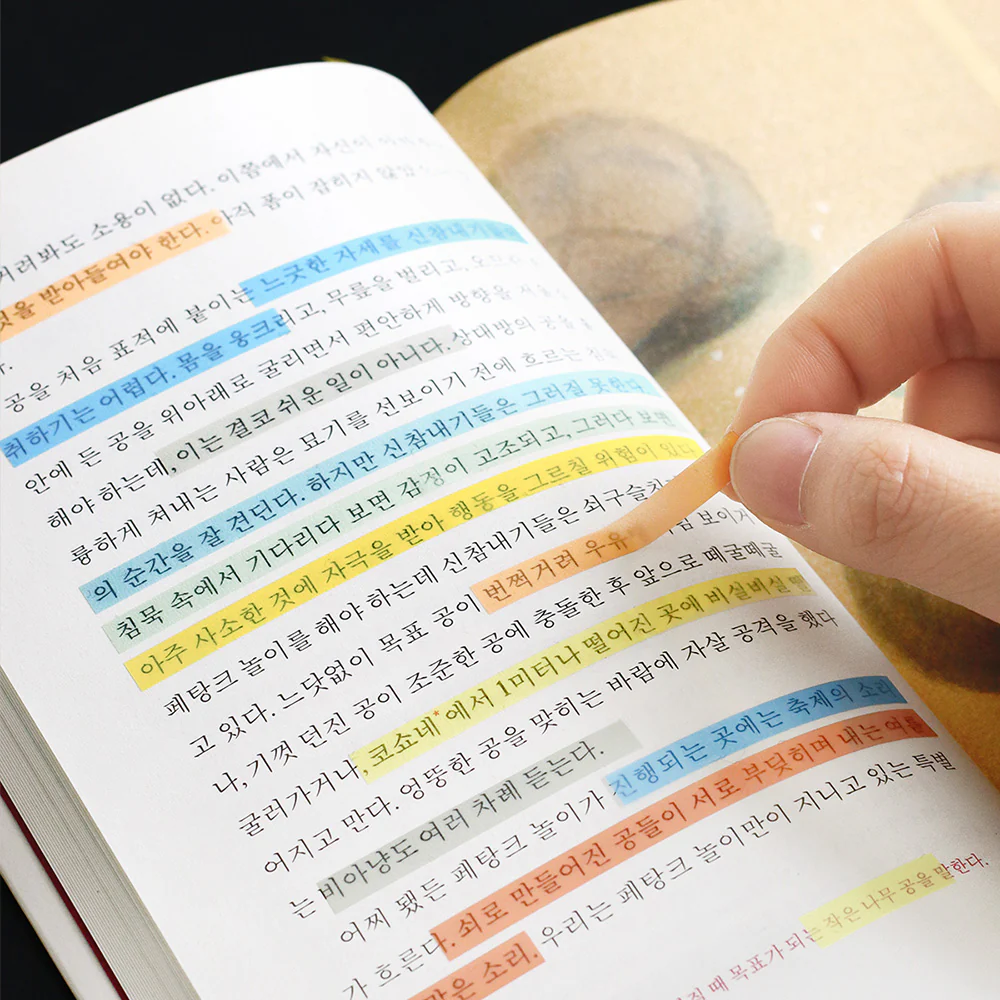 거려봐도 소용이 없다. 이쯤에서 자신이
것을 받아들여야 한다. 아직 폼이 잡히지 않았
.
공을 처음 표적에 붙이는 느긋한 자세를 신참내기들이
취하기는 어렵다. 몸을 웅크리고, 무릎을 벌리고,
안에 든 공을 위아래로 굴리면서 편안하게 방향을
해야 하는데, 이는 결코 쉬운 일이 아니다. 상대방의 공을
륭하게 쳐내는 사람은 묘기를 선보이기 전에 흐르는 침묵
의 순간을 잘 견딘다. 하지만 신참내기들은 그러질 못한다.
침묵 속에서 기다리다 보면 감정이 고조되고, 그러다 보면
아주 사소한 것에 자극을 받아 행동을 그르칠 위험이 있다.
페탕크 놀이를 해야 하는데 신참내기들은 쇠구슬치
고 있다. 느닷없이 목표 공이 번쩍거려 우유 럼 보이거
나, 기껏 던진 공이 조준한 공에 충돌한 후 앞으로 떼굴떼굴
굴러가거나, 코쇼네*에서 1미터나 떨어진 곳에 비실비실 떨
어지고 만다. 엉뚱한 공을 맞히는 바람에 자살 공격을 했다
는 비아냥도 여러 차례 듣는다.
어찌 됐든 페탕크 놀이가 진행되는 곳에는 축제의 소리
가 흐른다. 쇠로 만들어진 공들이 서로 부딪히며 내는 여름
맑은 소리. 우리는 페탕크 놀이만이 지니고 있는 특별
질 때 목표가 되는 작은 나무 공을 말한다.